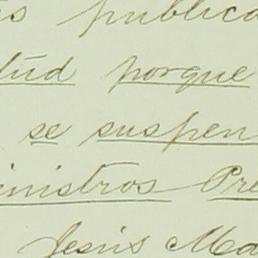 s publica
tud porque
se suspen
inistros Pre
Jesús Ma